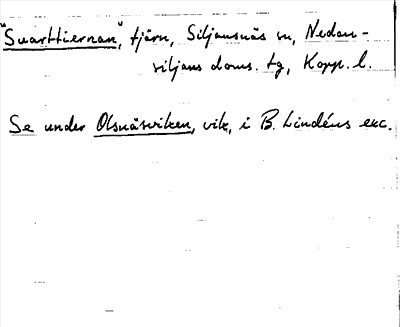 "Svarttiernan", tjärn, Siljansnäs sn, Nedan-
siljans doms. tg, Kopp. l.
Se under Olsnäsviken, vik, i B. Lindéns exc.